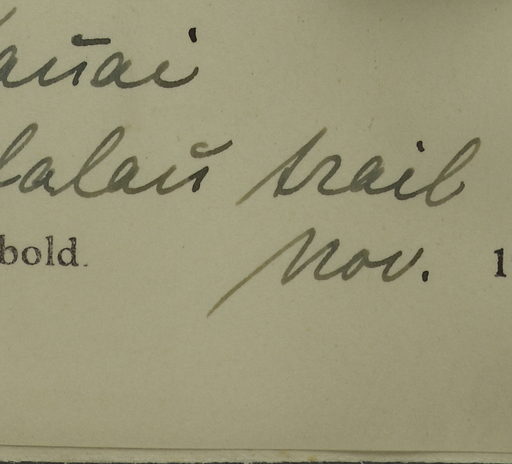 auai
alau trail
bold. Nov. 1